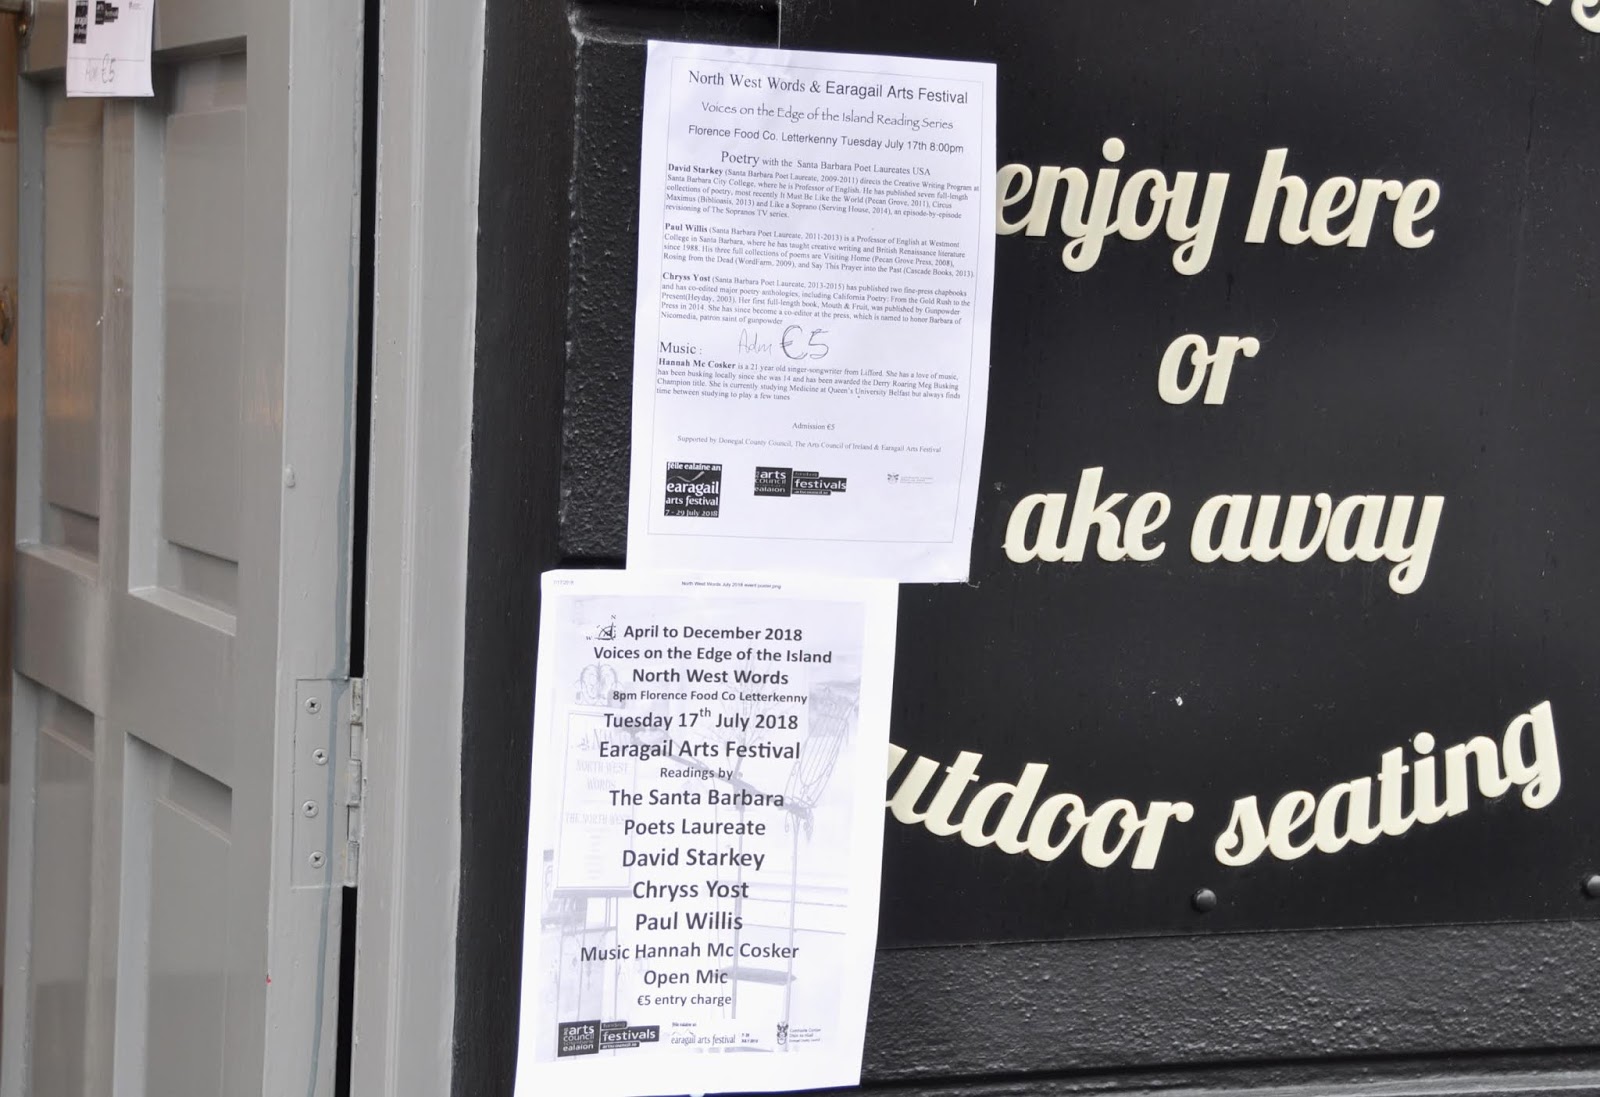 Adm €5
North West Words & Earagail Arts Festival
Voices on the Edge of the Island Reading Series
Florence Food Co. Letterkenny Tuesday July 17th 8:00pm
Poetry with the Santa Barbara Poet Laureates USA
David Starkey (Santa Barbara Poet Laureate, 2009-2011) directs the Creative Writing Program at
Santa Barbara City College, where he is Professor of English. He has published seven full-length
collections of poetry, most recently It Must Be Like the World (Pecan Grove, 2011), Circus
Maximus (Biblioasis, 2013) and Like a Soprano (Serving House, 2014), an episode-by-episode
revisioning of The Sopranos TV series.
Paul Willis (Santa Barbara Poet Laureate, 2011-2013) is a Professor of English at Westmont
College in Santa Barbara, where he has taught creative writing and British Renaissance literature
since 1988. His three full collections of poems are Visiting Home (Pecan Grove Press, 2008),
Rosing from the Dead (WordFarm, 2009), and Say This Prayer into the Past (Cascade Books, 2013).
Chryss Yost (Santa Barbara Poet Laureate, 2013-2015) has published two fine-press chapbooks
and has co-edited major poetry anthologies, including California Poetry: From the Gold Rush to the
Present(Heyday, 2003). Her first full-length book, Mouth & Fruit, was published by Gunpowder
Press in 2014. She has since become a co-editor at the press, which is named to honor Barbara of
Nicomedia, patron saint of gunpowder
Adm €5
Music :
Hannah Mc Cosker is a 21 year old singer-songwriter from Lifford. She has a love of music,
has been busking locally since she was 14 and has been awarded the Derry Roaring Meg Busking
Champion title. She is currently studying Medicine at Queen's University Belfast but always finds
time between studying to play a few tunes
Admission €5
Supported by Donegal County Council, The Arts Council of Ireland & Earagail Arts Festival
féile ealaíne an
earagail
arts festival
7 - 29 July 2018
arts
council
ealaíon
funding
festivals
North West Words July 2018 event poster.png
N
W
April to December 2018
Voices on the Edge of the Island
North West Words
8pm Florence Food Co Letterkenny
Tuesday 17th July 2018
Earagail Arts Festival
Readings by
The Santa Barbara
Poets Laureate
David Starkey
Chryss Yost
Paul Willis
Music Hannah Mc Cosker
Open Mic
€5 entry charge
NORTH WEST
WORDS
arts
council
ealaíon
funding
festivals
earagail arts festival
enjoy here
or
ake away
utdoor seating